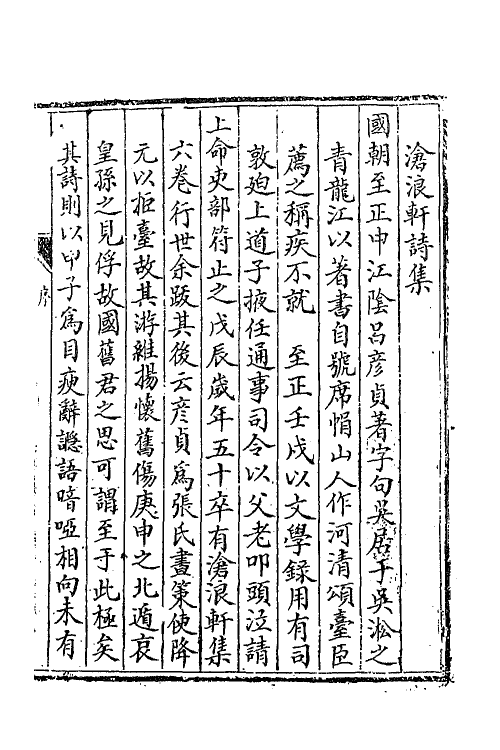 滄浪軒詩集
國朝至正中江陰呂彥貞著字句吳居于吳淞之
青龍江以著書自號席帽山人作河清頌臺臣
薦之稱疾不就 至正壬戌以文學錄用有司
敦廹上道子掖任通事司令以父老叩頭泣請
上命吏部符止之戊辰歲年五十卒有滄浪軒集
六卷行世余䟦其後云彥貞爲張氏畫策使降
元以拒臺故其游維揚懷舊傷庚申之北遁哀
皇孫之見俘故國舊君之思可謂至于此極矣
其詩則以甲子爲目廋辭讔語喑啞相向未有
序